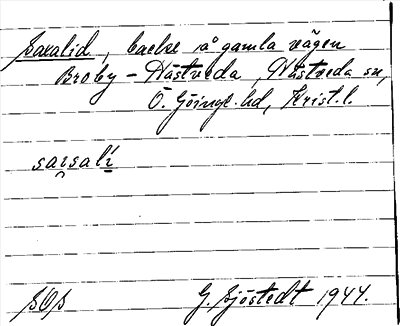 Saxalid, backe å gamla vägen
Broby - Hästveda, Hästveda sn,
Ö. Göinge hd, Krist. l.
SOS G. Sjöstedt 1944.